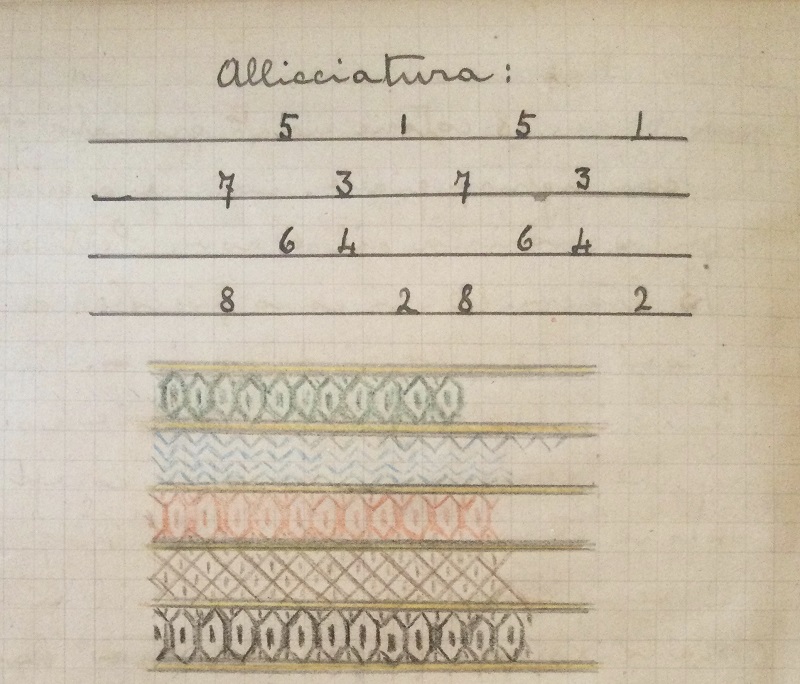 Allicciatura:
5 1 5 1
7 3 7 3
6 4 6 4
8 2 8 2